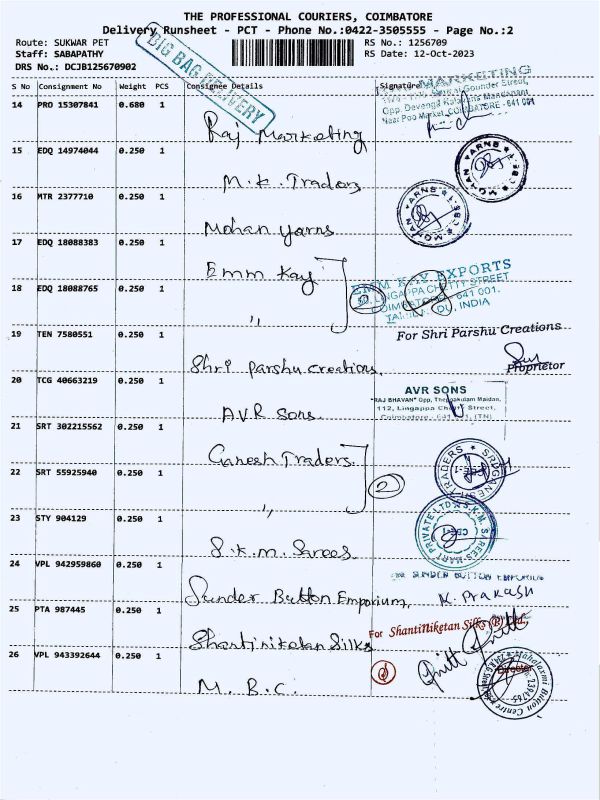 THE PROFESSIONAL COURIERS, COIMBATORE
Delivery Runsheet - PCT - Phone No.:0422-3505555 - Page No.:2
Route: SUKWAR PET
RS No.: 1256709
Staff: SABAPATHY
RS Date: 12-Oct-2023
DRS No.: DCJB125670902
BIG BAG DELIVERY
S No Consignment No Weight PCS Consignee Details Signature
14 PRO 15307841 0.680 1
MARKETING
Gounder Street,
Opp. Devanga
Near Poo Market, COIMBATORE - 641 001
Raj Marketing
15 EDQ 14974044 0.250 1
MOHAN YARNS
M.K. Traders
16 MTR 2377710 0.250 1
MOHAN YARNS
Mohan yarns
17 EDQ 18088383 0.250 1
Emm Kay
2
EMM KAY EXPORTS
LINGAPPA CHETTY STREET
COIMBATORE - 641 001.
INDIA
18 EDQ 18088765 0.250 1
"
19 TEN 7580551 0.250 1
For Shri Parshu Creations
Proprietor
Shri Parshu Creations.
20 TCG 40663219 0.250 1
AVR SONS
"RAJ BHAVAN" Opp, Theppakulam Maidan,
112, Lingappa Chetty Street,
Coimbatore (TN)
A.V.R Sons.
21 SRT 302215562 0.250 1
Ganesh Traders
2
TRADERS
22 SRT 55925940 0.250 1
"
23 STY 904129 0.250 1
S.K.M. SAREES MART PRIVATE LTD
S.K.M. Sarees
24 VPL 942959860 0.250 1
SUNDER BUTTON EMPORIUM
K. Prakash
Sunder Button Emporium,
25 PTA 987445 0.250 1
For Shantiniketan Silks (P) Ltd.,
Director
Shantiniketan Silks
26 VPL 943392644 0.250 1
Mahalaxmi Button Centre
2394765
M. B. C.